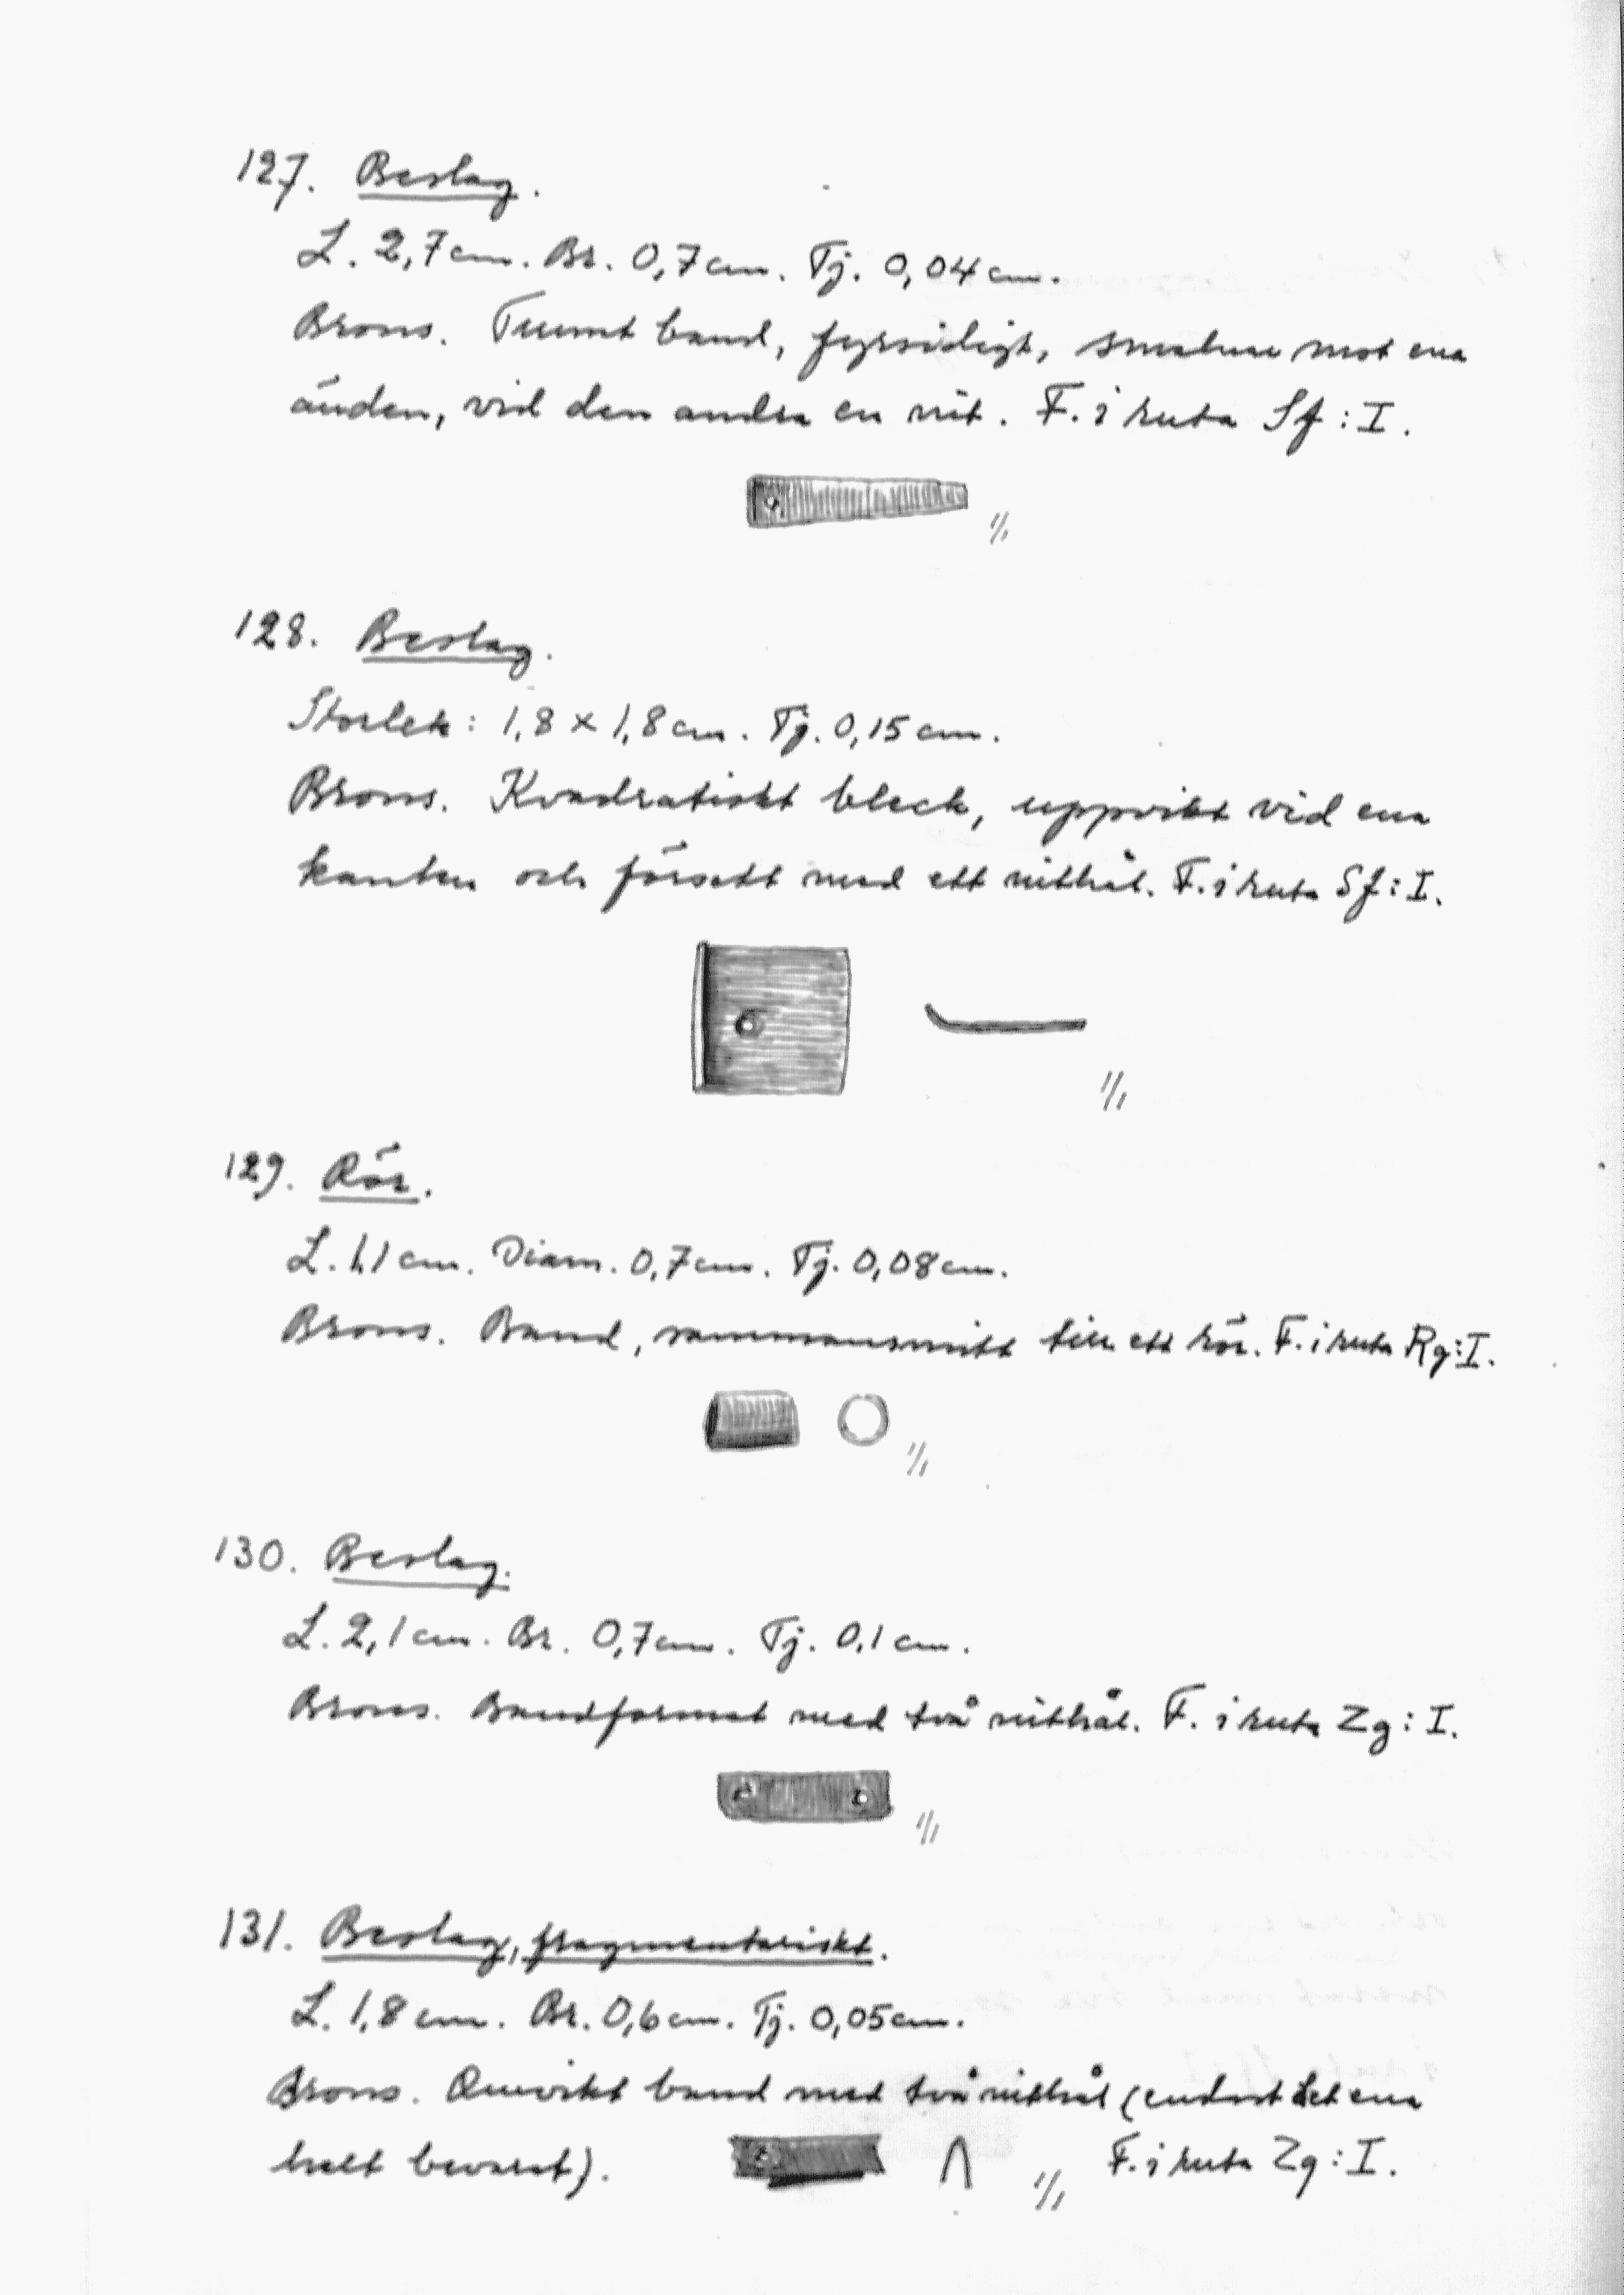 127. Beslag.
L. 2,7 cm. Br. 0,7 cm. Tj. 0,04 cm.
Brons. Tunnt band, fyrsidigt, smalnar mot ena
änden, vid den andra en nit. F. i ruta Sf : I.
1/1
128. Beslag.
Storlek : 1,8 × 1,8 cm. Tj. 0,15 cm.
Brons. Kvadratiskt bleck, uppvikt vid ena
kanten och försett med ett nithål. F. i ruta Sf : I.
1/1
129. Rör.
L. 1,1 cm. Diam. 0,7 cm. Tj. 0,08 cm.
Brons. Band, till ett rör. F. i ruta Rg : I.
1/1
130. Beslag.
L. 2,1 cm. Br. 0,7 cm. Tj. 0,1 cm.
Brons. Bandformat med två nithål. F. i ruta Zg : I.
1/1
131. Beslag, fragmentariskt.
L. 1,8 cm. Br. 0,6 cm. Tj. 0,05 cm.
Brons. Omvikt band med två nithål (endast det ena
helt bevarat). 1/1 F. i ruta Zg : I.